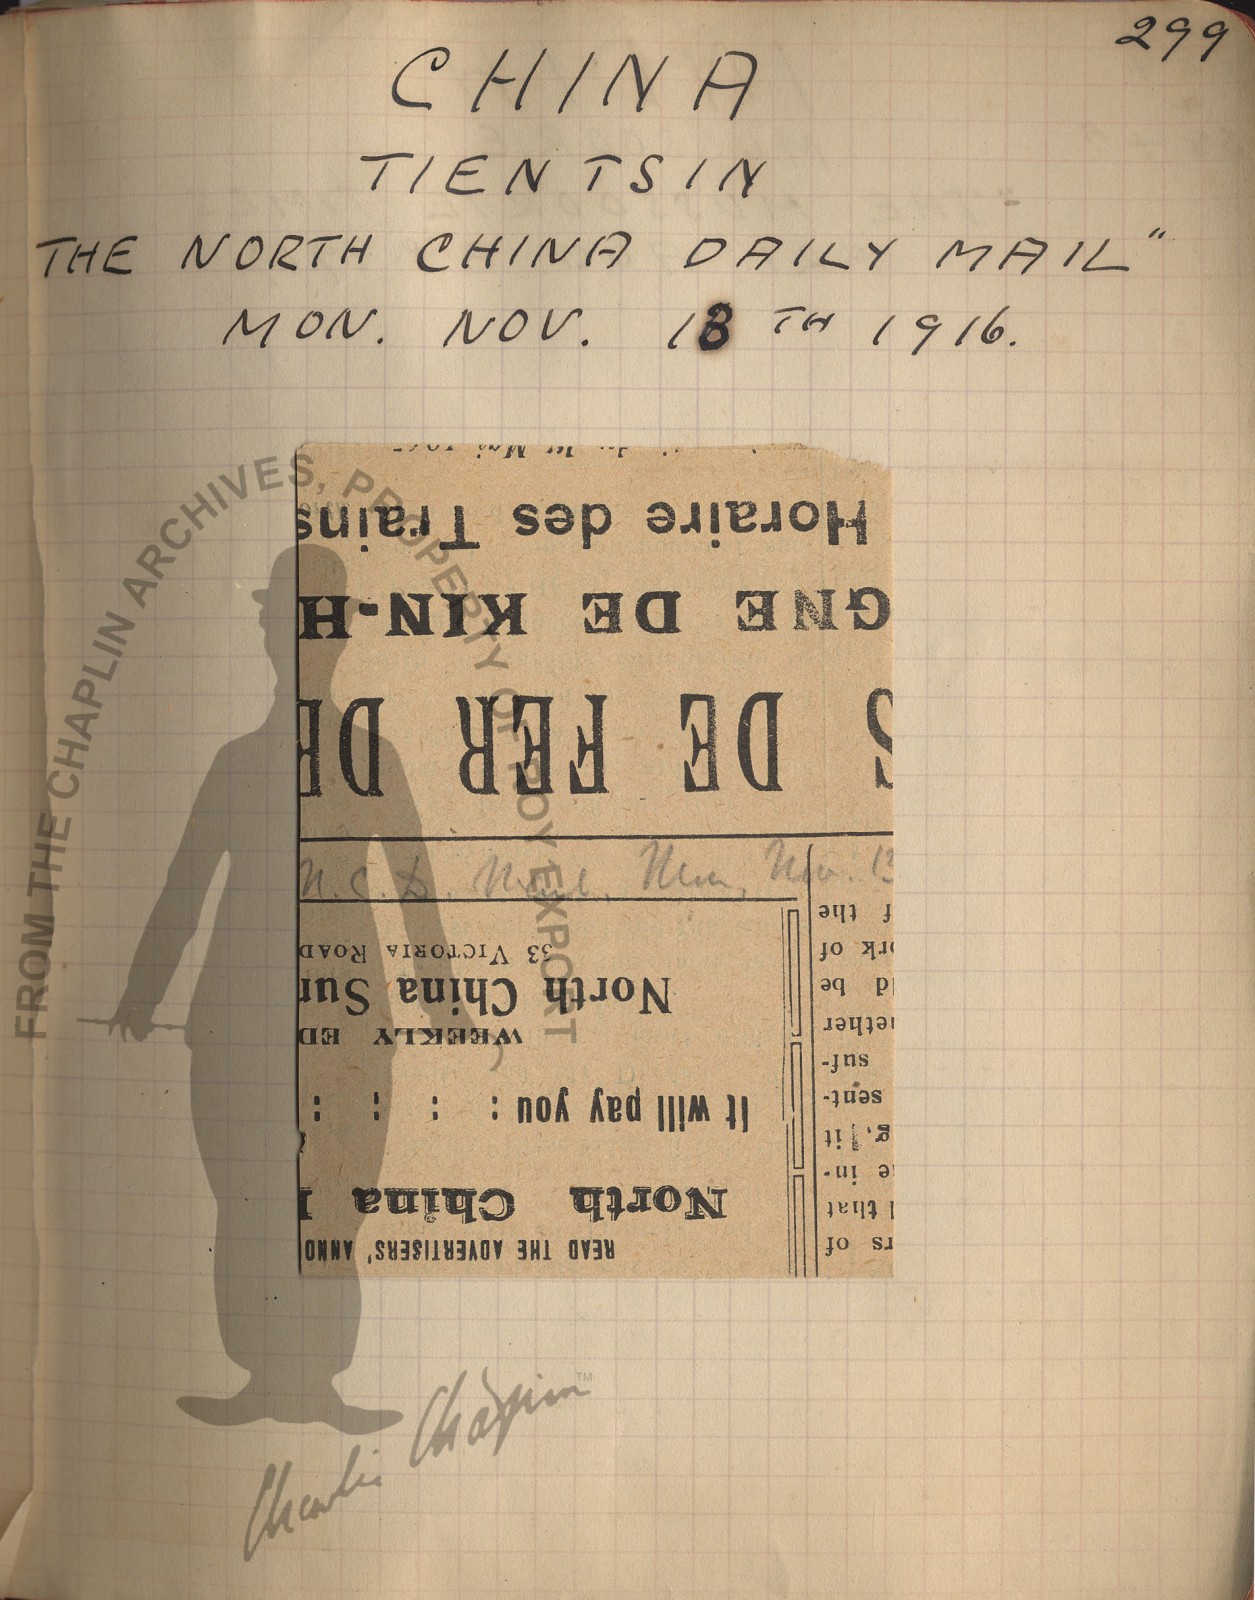 299
CHINA
TIENTSIN
THE NORTH CHINA DAILY MAIL"
MON. NOV. 13TH 1916.
READ THE ADVERTISERS' ANNO
North China
It will pay you : : : :
WEEKLY ED
North China Sun
33 VICTORIA ROAD
rs of
that
e in-
g, it
sent-
suf-
ether
ld be
rk of
f the
N. C. D. Mail. Mon, Nov. 13
S DE FER DE
GNE DE KIN-H
Horaire des Trains
FROM THE CHAPLIN ARCHIVES, PROPERTY OF ROY EXPORT
Charlie Chaplin™